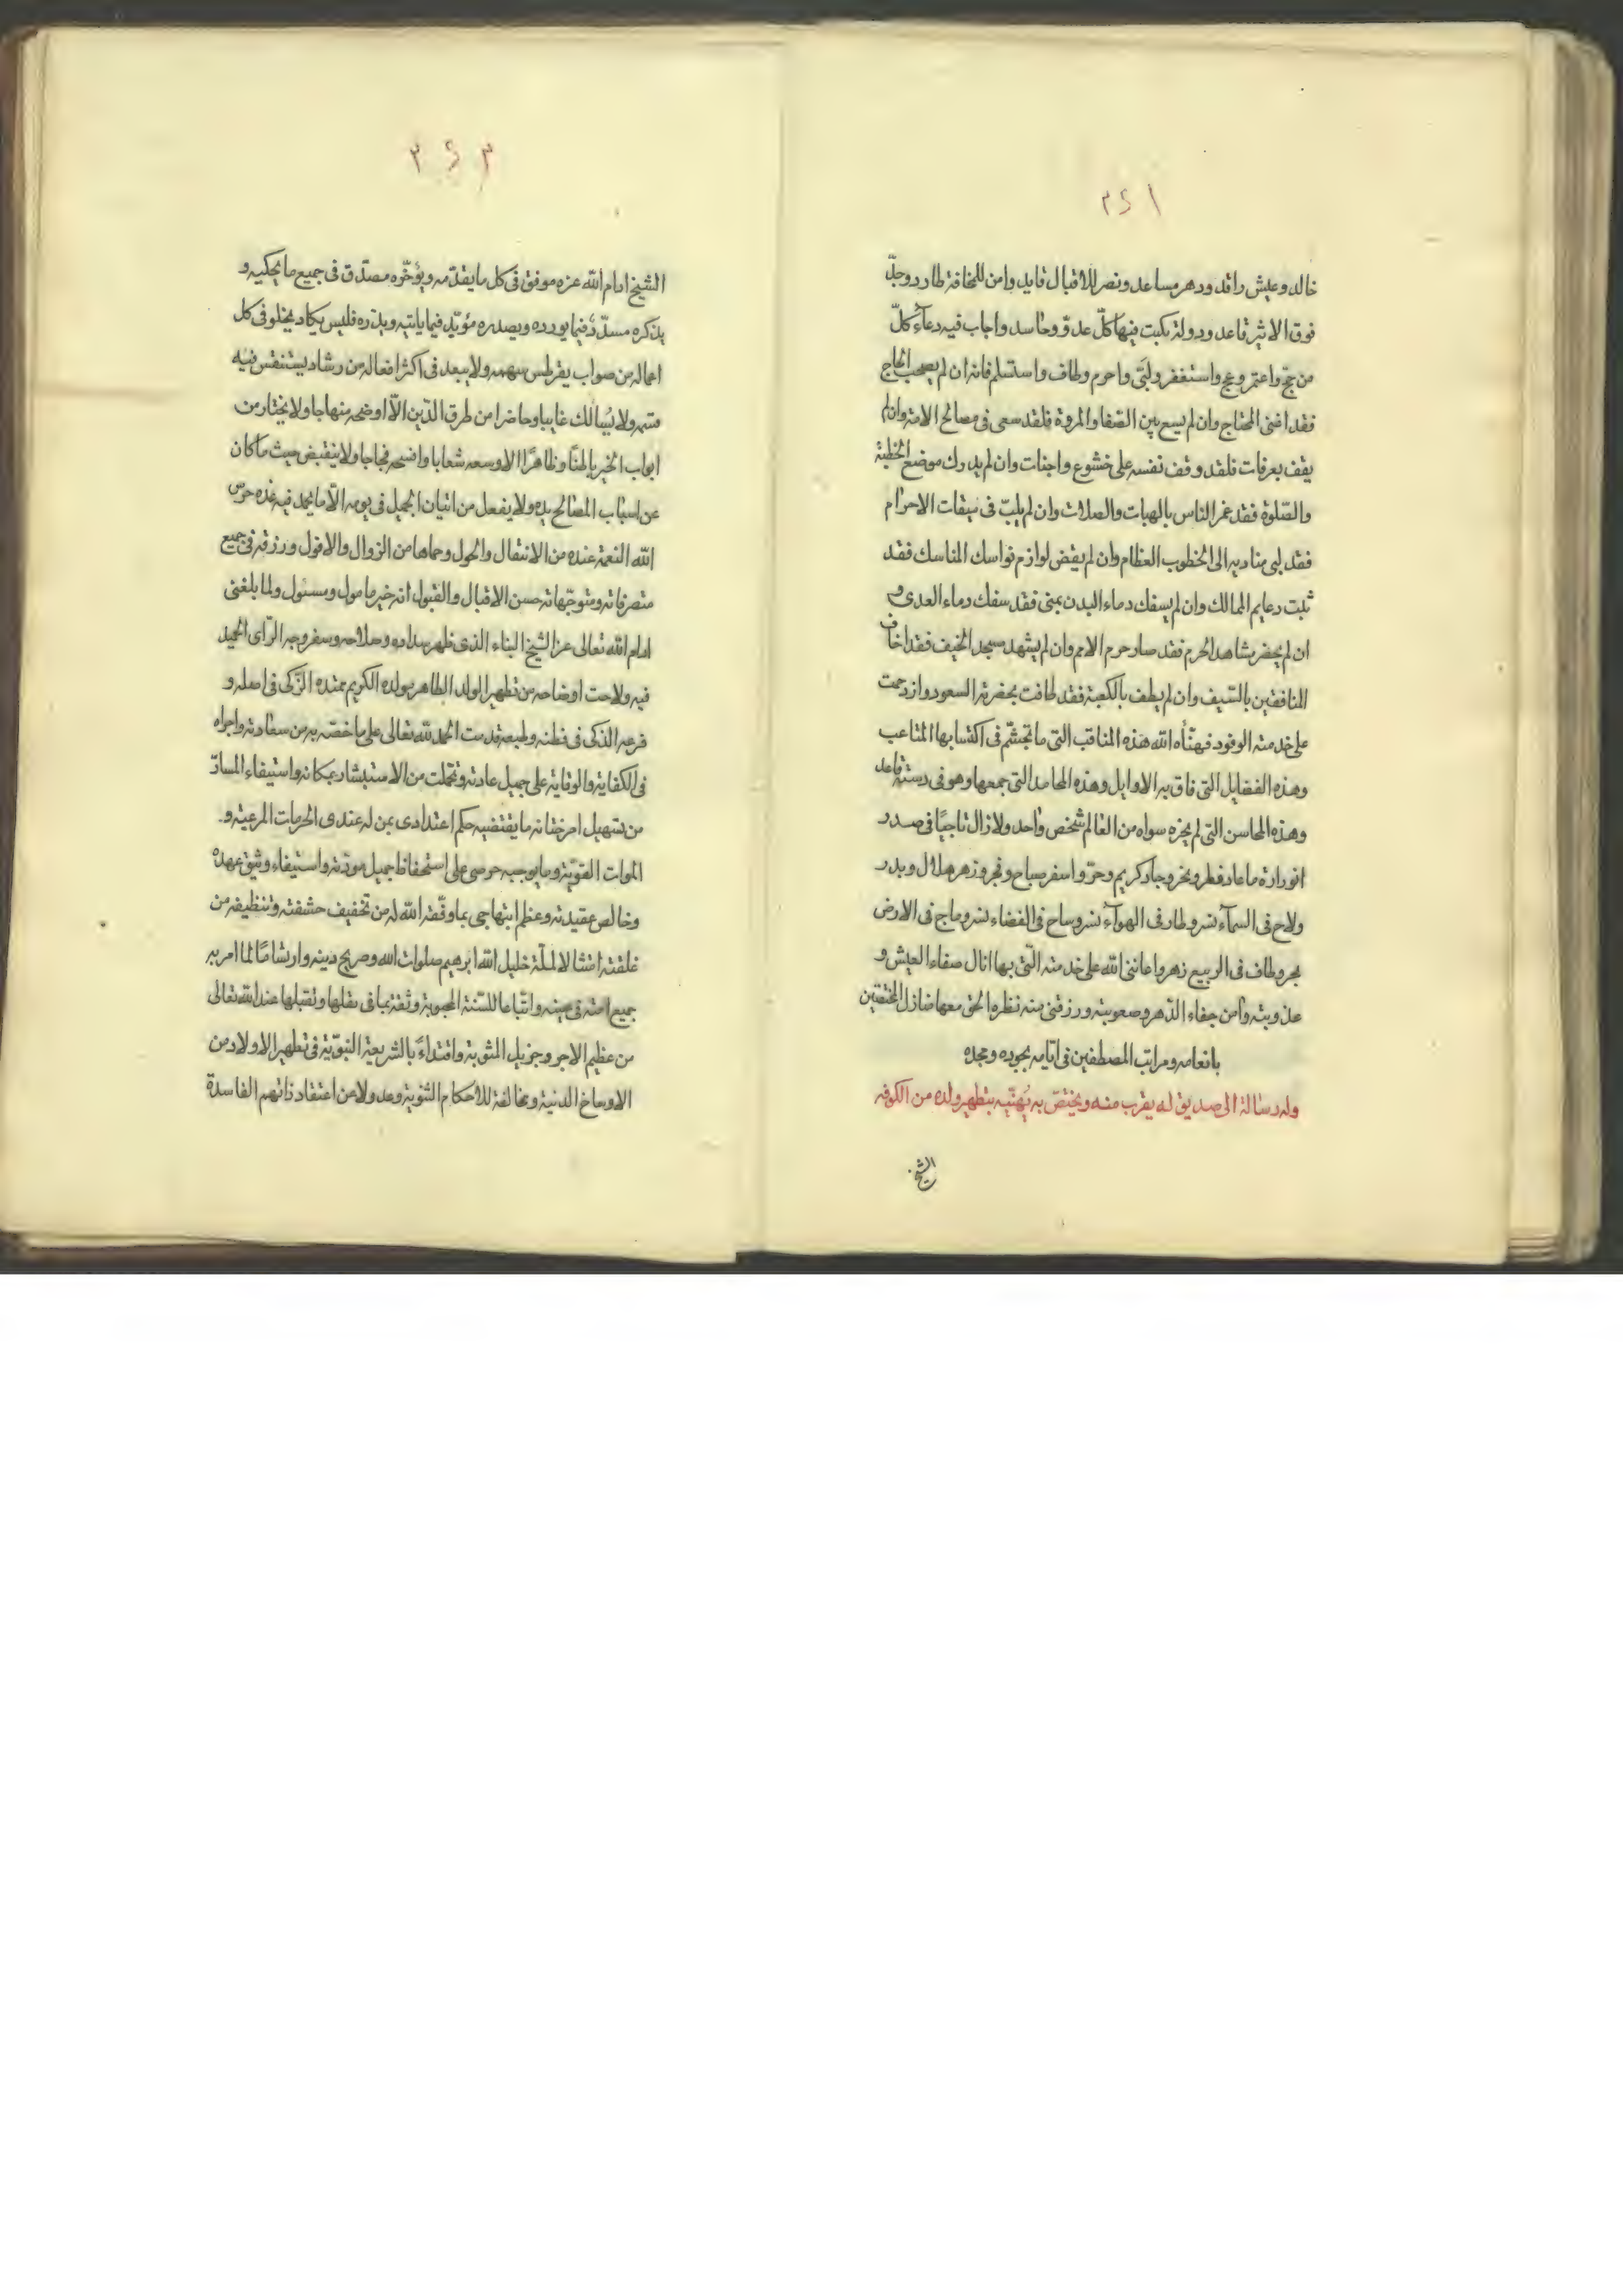 ٢٤١
خالد وعيش راقد ودهر مساعد ونصر للاقبال قايد وامن للمخافة طارد وجدّ
فوق الاثير قاعد ودولة يكبت فيها كلّ عدوّ وحاسد واجاب فيه دعآء كلّ
من حجّ واعتمر وعج واستغفر ولبّى واحرم وطاف واستسلم فانه ان لم يصحب الحاج
فقد اغنى المحتاج وان لم يسع بين الصّفا والمروة فلقد سعى فى مصالح الامة وان لم
يقف بعرفات فلقد وقف نفسه على خشوع واخبات وان لم يدرك موضع الخطبة
والصّلوة فقد غمر الناس بالهبات والصلات وان لم يلبّ فى ميقات الاحرام
فقد لبى مناديه الى الخطوب العظام وان لم يقض لوازم نواسك المناسك فقد
ثبت دعايم الممالك وان لم يسفك دماء البدن بمنى فقد سفك دماء العدى و
ان لم يحضر مشاهد الحرم فقد صار حرم الامم وان لم يشهد مسجد الخيف فقد اخاف
المنافقين بالسّيف وان لم يطف بالكعبة فقد طافت بحضرته السعود وازدحمت
على خدمته الوفود فهنّأه الله هذه المناقب التى ما تجشّم فى اكتسابها المتاعب
وهذه الفضايل التى فاق به الاوايل وهذه المحامد التى جمعها وهو فى دسته قاعد
وهذه المحاسن التى لم يحزه سواه من العالم شخص واحد ولا زال
ما عاد فطر ونحر وجاد كريم وحرّ واسفر صباح وفجر وزهر هلال وبدر
ولاح فى السمآء نسر وطار فى الهوآء نسر وساح فى الفضاء نسر وماج فى الارض
بحر وطاف فى الربيع زهر واعاننى الله على خدمته الّتى بها انال صفاء العيش و
عذوبته وآمن جفاء الدّهر وصعوبته ورزقنى منه نظره الحق معها منازل المختصّين
بانعامه ومراتب المصطفين فى ايّامه بجوده ومجده
وله رسالة الى صديق له يقرب منه ويختصّ به يهنّيه بتطهير ولده من الكوفه
الشيخ
٣٤٢
الشيخ ادام الله عزه موفق فى كل ما يقدّمه ويؤخّره مصدّق فى جميع ما يحكيه و
يذكره مسدّد فيما يورده ويصدره مؤيّد فيما ياتيه ويذره فليس يكاد يخلو فى كل
اعماله من صواب يقرطس سهمه ولا يبعد فى اكثر افعاله من رشاد
ولا غايبا وحاضرا من طرق الدّين الّا اوضحه منهاجا ولا يختار من
ابواب الخير باطنًا وظاهرًا الا وسعه شعابا واضحه فجاجا ولا ينقبض حيث ما كان
عن اسباب المصالح يده ولا يفعل من اتيان الجميل فى يومه الّا ما يحمد فيه غده حرس
الله النعمة عنده من الانتقال والحول وحماها من الزوال والافول ورزقه فى جميع
متصرفاته ومتوجّهاته حسن الاقبال والقبول انه خير مامول ومسئول ولما بلغنى
ادام الله تعالى عز الشيخ البناء الذى ظهر سداده وصلاحه وسفر وجه الرّاى الحميد
فيه ولاحت اوضاحه من تطهير الولد الطاهر بولده الكريم محتده الزّكى فى اصله و
فرعه الذكى فى فطنه وطبعه قدمت الحمد لله تعالى على ما خصّه به من سعادته واجراه
فى الكفاية والوقاية على جميل عادته وتحمّلت من الاستبشار بمكانه واستيفاء المسارّ
من تسهيل امر ختانه ما يقتضيه حكم اعتدادى بمن له عندى الحرمات المرعيّة و
الموات القويّة وما يوجبه حرصى على استحفاظ جميل مودّته واستيفاء وثيق عهده
وخالص عقيدته وعظم ابتهاجى بما وفّقه الله له من تخفيف حشفته وتنظيفه من
غلفته امتثالا لملّة خليل الله ابرهيم صلوات الله وصريح دينه وارتسامًا لما امر به
جميع امته فى حينه واتّباعا للسّنة المحبوبة وثقة بما فى نقلها وتقبلها عند الله تعالى
من عظيم الاجر وجزيل المثوبة واقتداءً بالشريعة النبويّة فى تطهير الاولاد من
الاوساخ الدنية ومخالفة للاحكام الثنوية وعدولا من اعتقاد الفاسدة